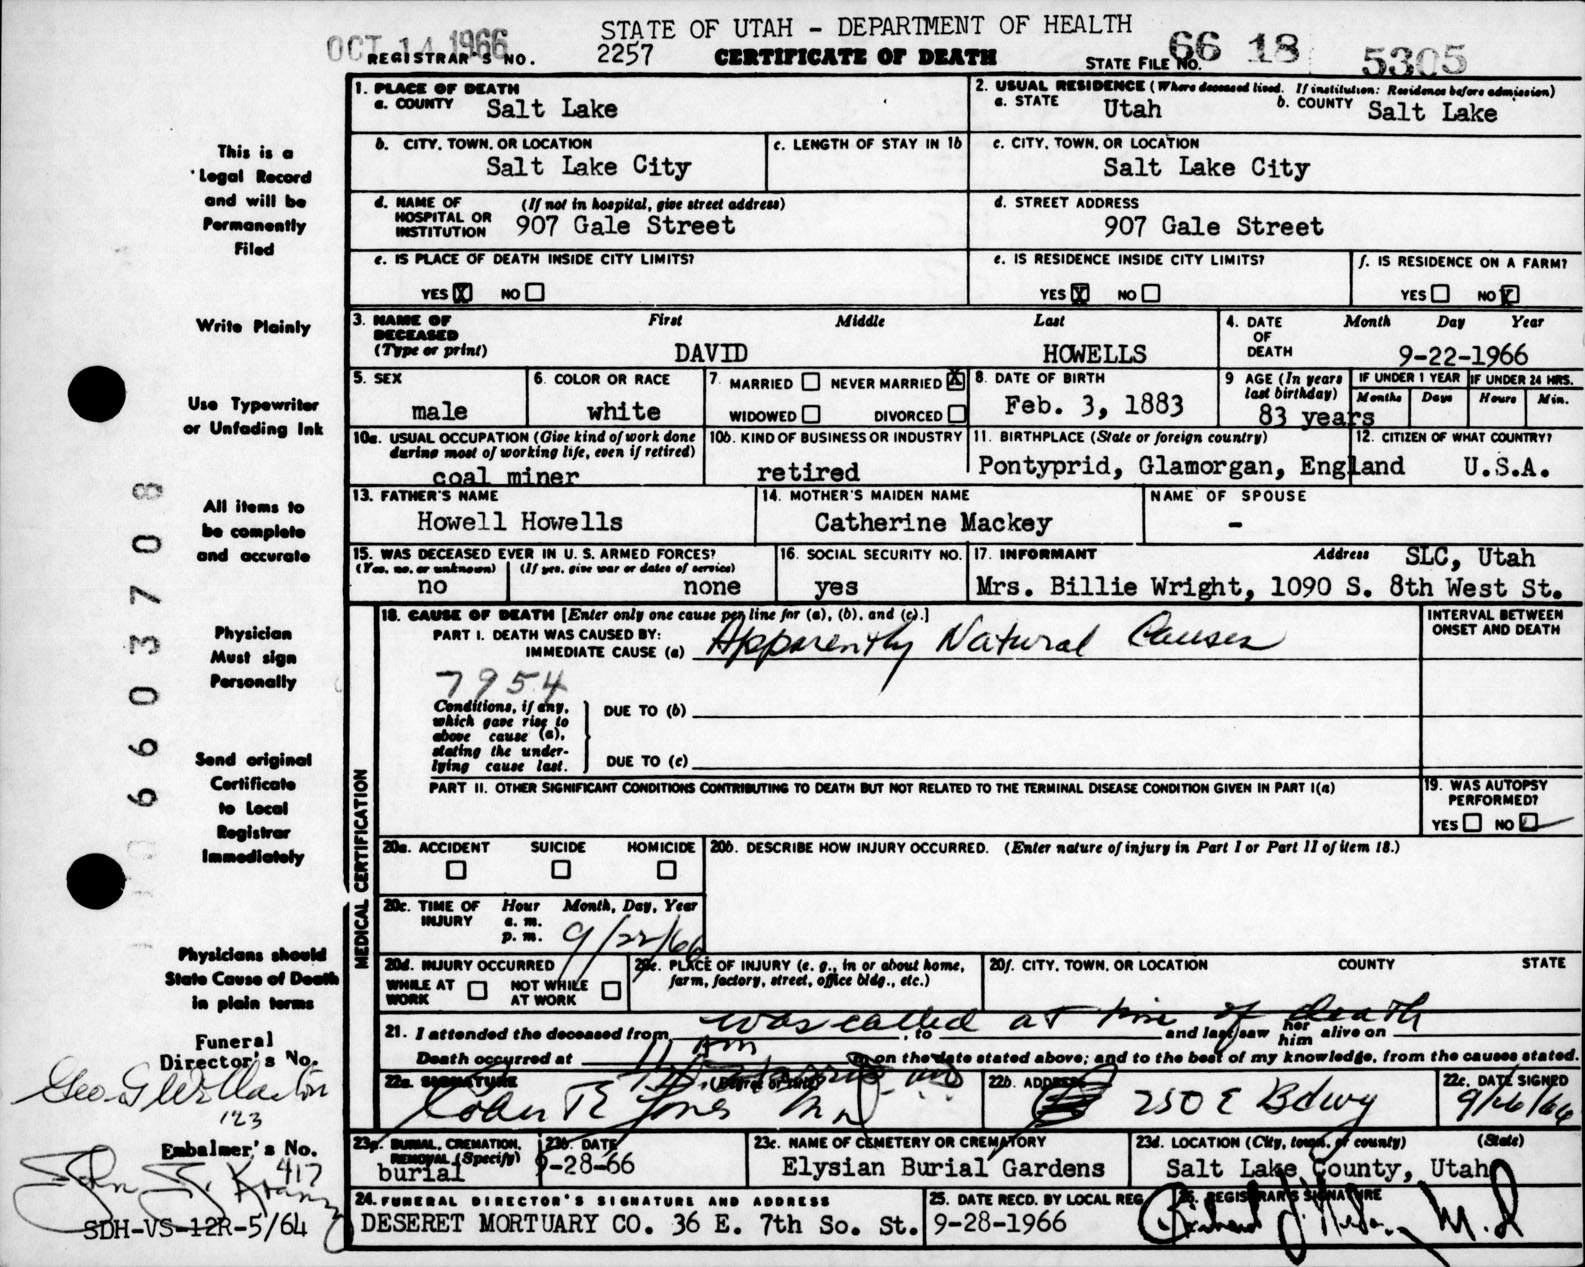 STATE OF UTAH - DEPARTMENT OF HEALTH
OCT 14 1966
REGISTRAR'S NO. 2257 CERTIFICATE OF DEATH STATE FILE NO. 66 18 5305
1. PLACE OF DEATH
a. COUNTY Salt Lake
2. USUAL RESIDENCE (Where deceased lived. If institution: Residence before admission)
a. STATE Utah b. COUNTY Salt Lake
b. CITY, TOWN, OR LOCATION
Salt Lake City
c. LENGTH OF STAY IN 1b
c. CITY, TOWN, OR LOCATION
Salt Lake City
d. NAME OF HOSPITAL OR INSTITUTION (If not in hospital, give street address)
907 Gale Street
d. STREET ADDRESS
907 Gale Street
e. IS PLACE OF DEATH INSIDE CITY LIMITS?
YES X NO
e. IS RESIDENCE INSIDE CITY LIMITS?
YES X NO
f. IS RESIDENCE ON A FARM?
YES NO X
3. NAME OF DECEASED (Type or print)
First Middle Last
DAVID HOWELLS
4. DATE OF DEATH Month Day Year
9-22-1966
5. SEX
male
6. COLOR OR RACE
white
7. MARRIED NEVER MARRIED X
WIDOWED DIVORCED
8. DATE OF BIRTH
Feb. 3, 1883
9 AGE (In years last birthday)
83 years
IF UNDER 1 YEAR
Months Days
IF UNDER 24 HRS.
Hours Min.
10a. USUAL OCCUPATION (Give kind of work done during most of working life, even if retired)
coal miner
10b. KIND OF BUSINESS OR INDUSTRY
retired
11. BIRTHPLACE (State or foreign country)
Pontyprid, Glamorgan, England
12. CITIZEN OF WHAT COUNTRY?
U.S.A.
13. FATHER'S NAME
Howell Howells
14. MOTHER'S MAIDEN NAME
Catherine Mackey
NAME OF SPOUSE
-
15. WAS DECEASED EVER IN U. S. ARMED FORCES?
(Yes, no, or unknown) (If yes, give war or dates of service)
no none
16. SOCIAL SECURITY NO.
yes
17. INFORMANT Address SLC, Utah
Mrs. Billie Wright, 1090 S. 8th West St.
MEDICAL CERTIFICATION
18. CAUSE OF DEATH [Enter only one cause per line for (a), (b), and (c).]
PART I. DEATH WAS CAUSED BY:
IMMEDIATE CAUSE (a) Apparently Natural Causes
INTERVAL BETWEEN ONSET AND DEATH
7954
Conditions, if any, which gave rise to above cause (a), stating the underlying cause last.
DUE TO (b)
DUE TO (c)
PART II. OTHER SIGNIFICANT CONDITIONS CONTRIBUTING TO DEATH BUT NOT RELATED TO THE TERMINAL DISEASE CONDITION GIVEN IN PART I(a)
19. WAS AUTOPSY PERFORMED?
YES NO
20a. ACCIDENT SUICIDE HOMICIDE
20b. DESCRIBE HOW INJURY OCCURRED. (Enter nature of injury in Part I or Part II of item 18.)
20c. TIME OF INJURY Hour Month, Day, Year
a. m.
p. m. 9/22/66
20d. INJURY OCCURRED
WHILE AT WORK NOT WHILE AT WORK
20e. PLACE OF INJURY (e. g., in or about home, farm, factory, street, office bldg., etc.)
20f. CITY, TOWN, OR LOCATION COUNTY STATE
21. I attended the deceased from was called at time of death, to and last saw her him alive on
Death occurred at 11 am m on the date stated above; and to the best of my knowledge, from the causes stated.
22a. SIGNATURE (Degree or title)
Jones M.D.
22b. ADDRESS
250 E Bdwy
22c. DATE SIGNED
9/26/66
23a. BURIAL, CREMATION, REMOVAL (Specify)
burial
23b. DATE
9-28-66
23c. NAME OF CEMETERY OR CREMATORY
Elysian Burial Gardens
23d. LOCATION (City, town, or county) (State)
Salt Lake County, Utah
24. FUNERAL DIRECTOR'S SIGNATURE AND ADDRESS
DESERET MORTUARY CO. 36 E. 7th So. St.
25. DATE RECD. BY LOCAL REG.
9-28-1966
26. REGISTRAR'S SIGNATURE
M.D
This is a
Legal Record
and will be
Permanently
Filed
Write Plainly
Use Typewriter
or Unfading Ink
All items to
be complete
and accurate
Physician
Must sign
Personally
Send original
Certificate
to Local
Registrar
Immediately
Physicians should
State Cause of Death
in plain terms
Funeral
Director's No.
123
Embalmer's No.
417
SDH-VS-12R-5/64
6603708